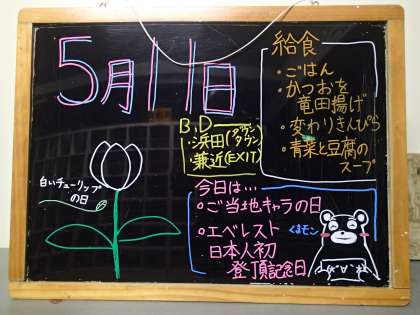 5月11日
給食
・ごはん
・かつおを
竜田揚げ
・変わりきんぴら
・青菜と豆腐の
スープ
B.D
・浜田(ダウンタウン)
・兼近(EXIT)
白いチューリップ
の日
今日は…
・ご当地キャラの日
・エベレスト
日本人初
登頂記念日
くまモン